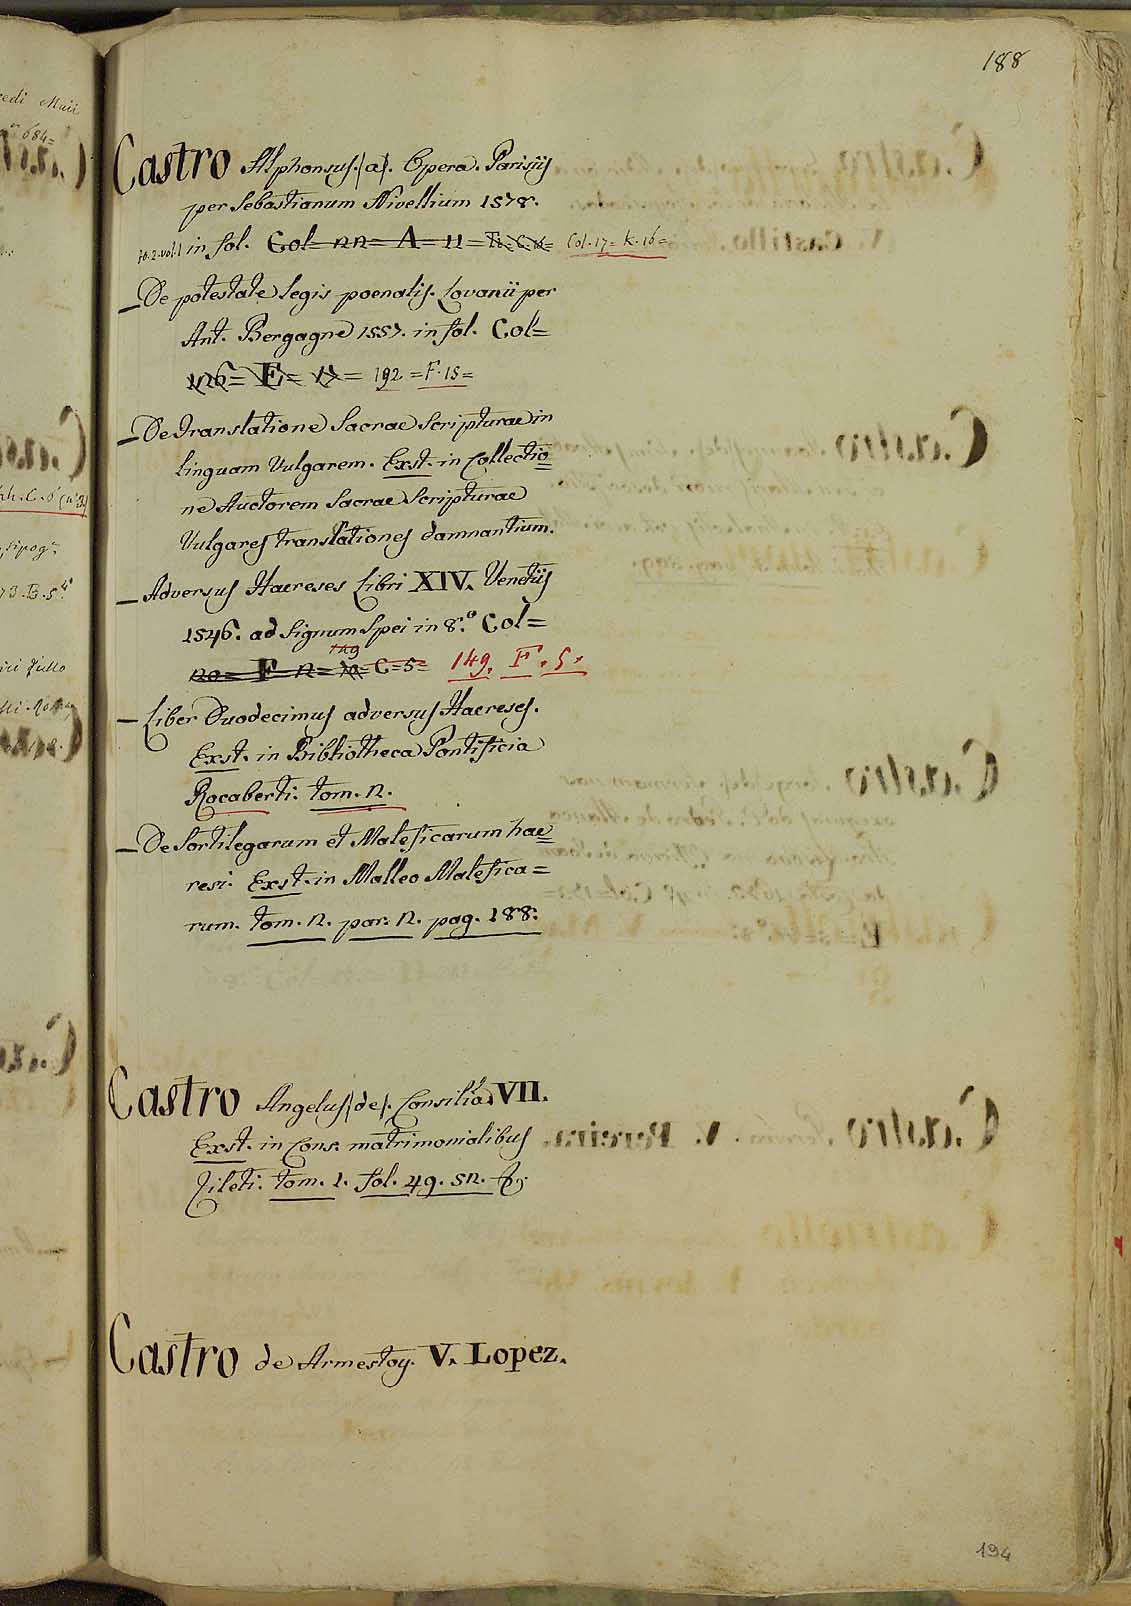 188
Castro Alphonsus (a). Opera. Parisiis
per Sebastianum Nivellium 1578.
in fol. Col= 22= A= 11= Col. 17= K. 16=
_De potestate legis poenalis. Lovanii per
Ant. Bergagne 1557. in fol. Col=
126= E= 17= 192 = F. 15=
_De translatione Sacrae Scripturae in
linguam Vulgarem. Exst. in Collectio=
ne Auctorem Sacrae Scripturae
Vulgares translationes damnantium.
_Adversus Haereses Libri XIV. Venetiis
1546. ad Signum Spei in 8.º Col=
149
20= F= 12= C=5= 149. F. 5.
_Liber Duodecimus adversus Haereses.
Exst. in Bibliotheca Pontificia
Rocaberti. tom. 2.
_De Sortilegarum et Maleficarum hae=
resi. Exst. in Malleo Malefica=
rum. tom. 2. par. 2. pag. 188.
Castro Angelus (de). Consilia VII.
Exst. in Cons. matrimonialibus
Zileti. tom. 1. fol. 49. sn.
Castro de Armestoy. V. Lopez.
194